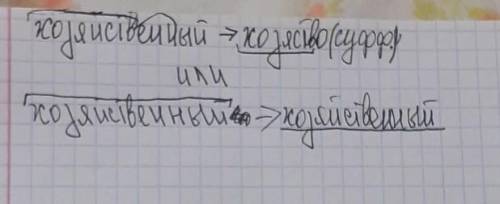 хозяйственный → хозяство (суфф.)
или
хозяйственный → хозяйственный